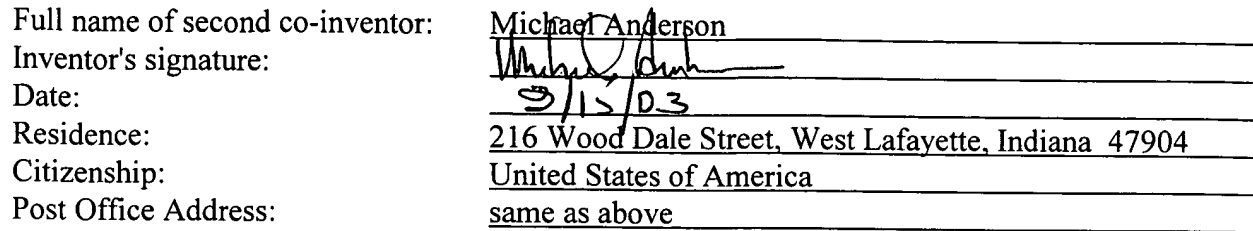 Full name of second co-inventor: Michael Anderson
Inventor's signature:
Date: 9/15/03
Residence: 216 Wood Dale Street, West Lafayette, Indiana 47904
Citizenship: United States of America
Post Office Address: same as above